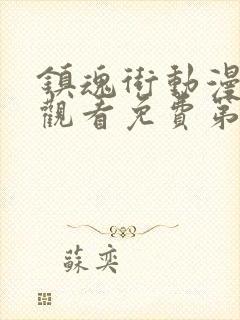 鎮魂街動漫
觀看免費第
蘇奕